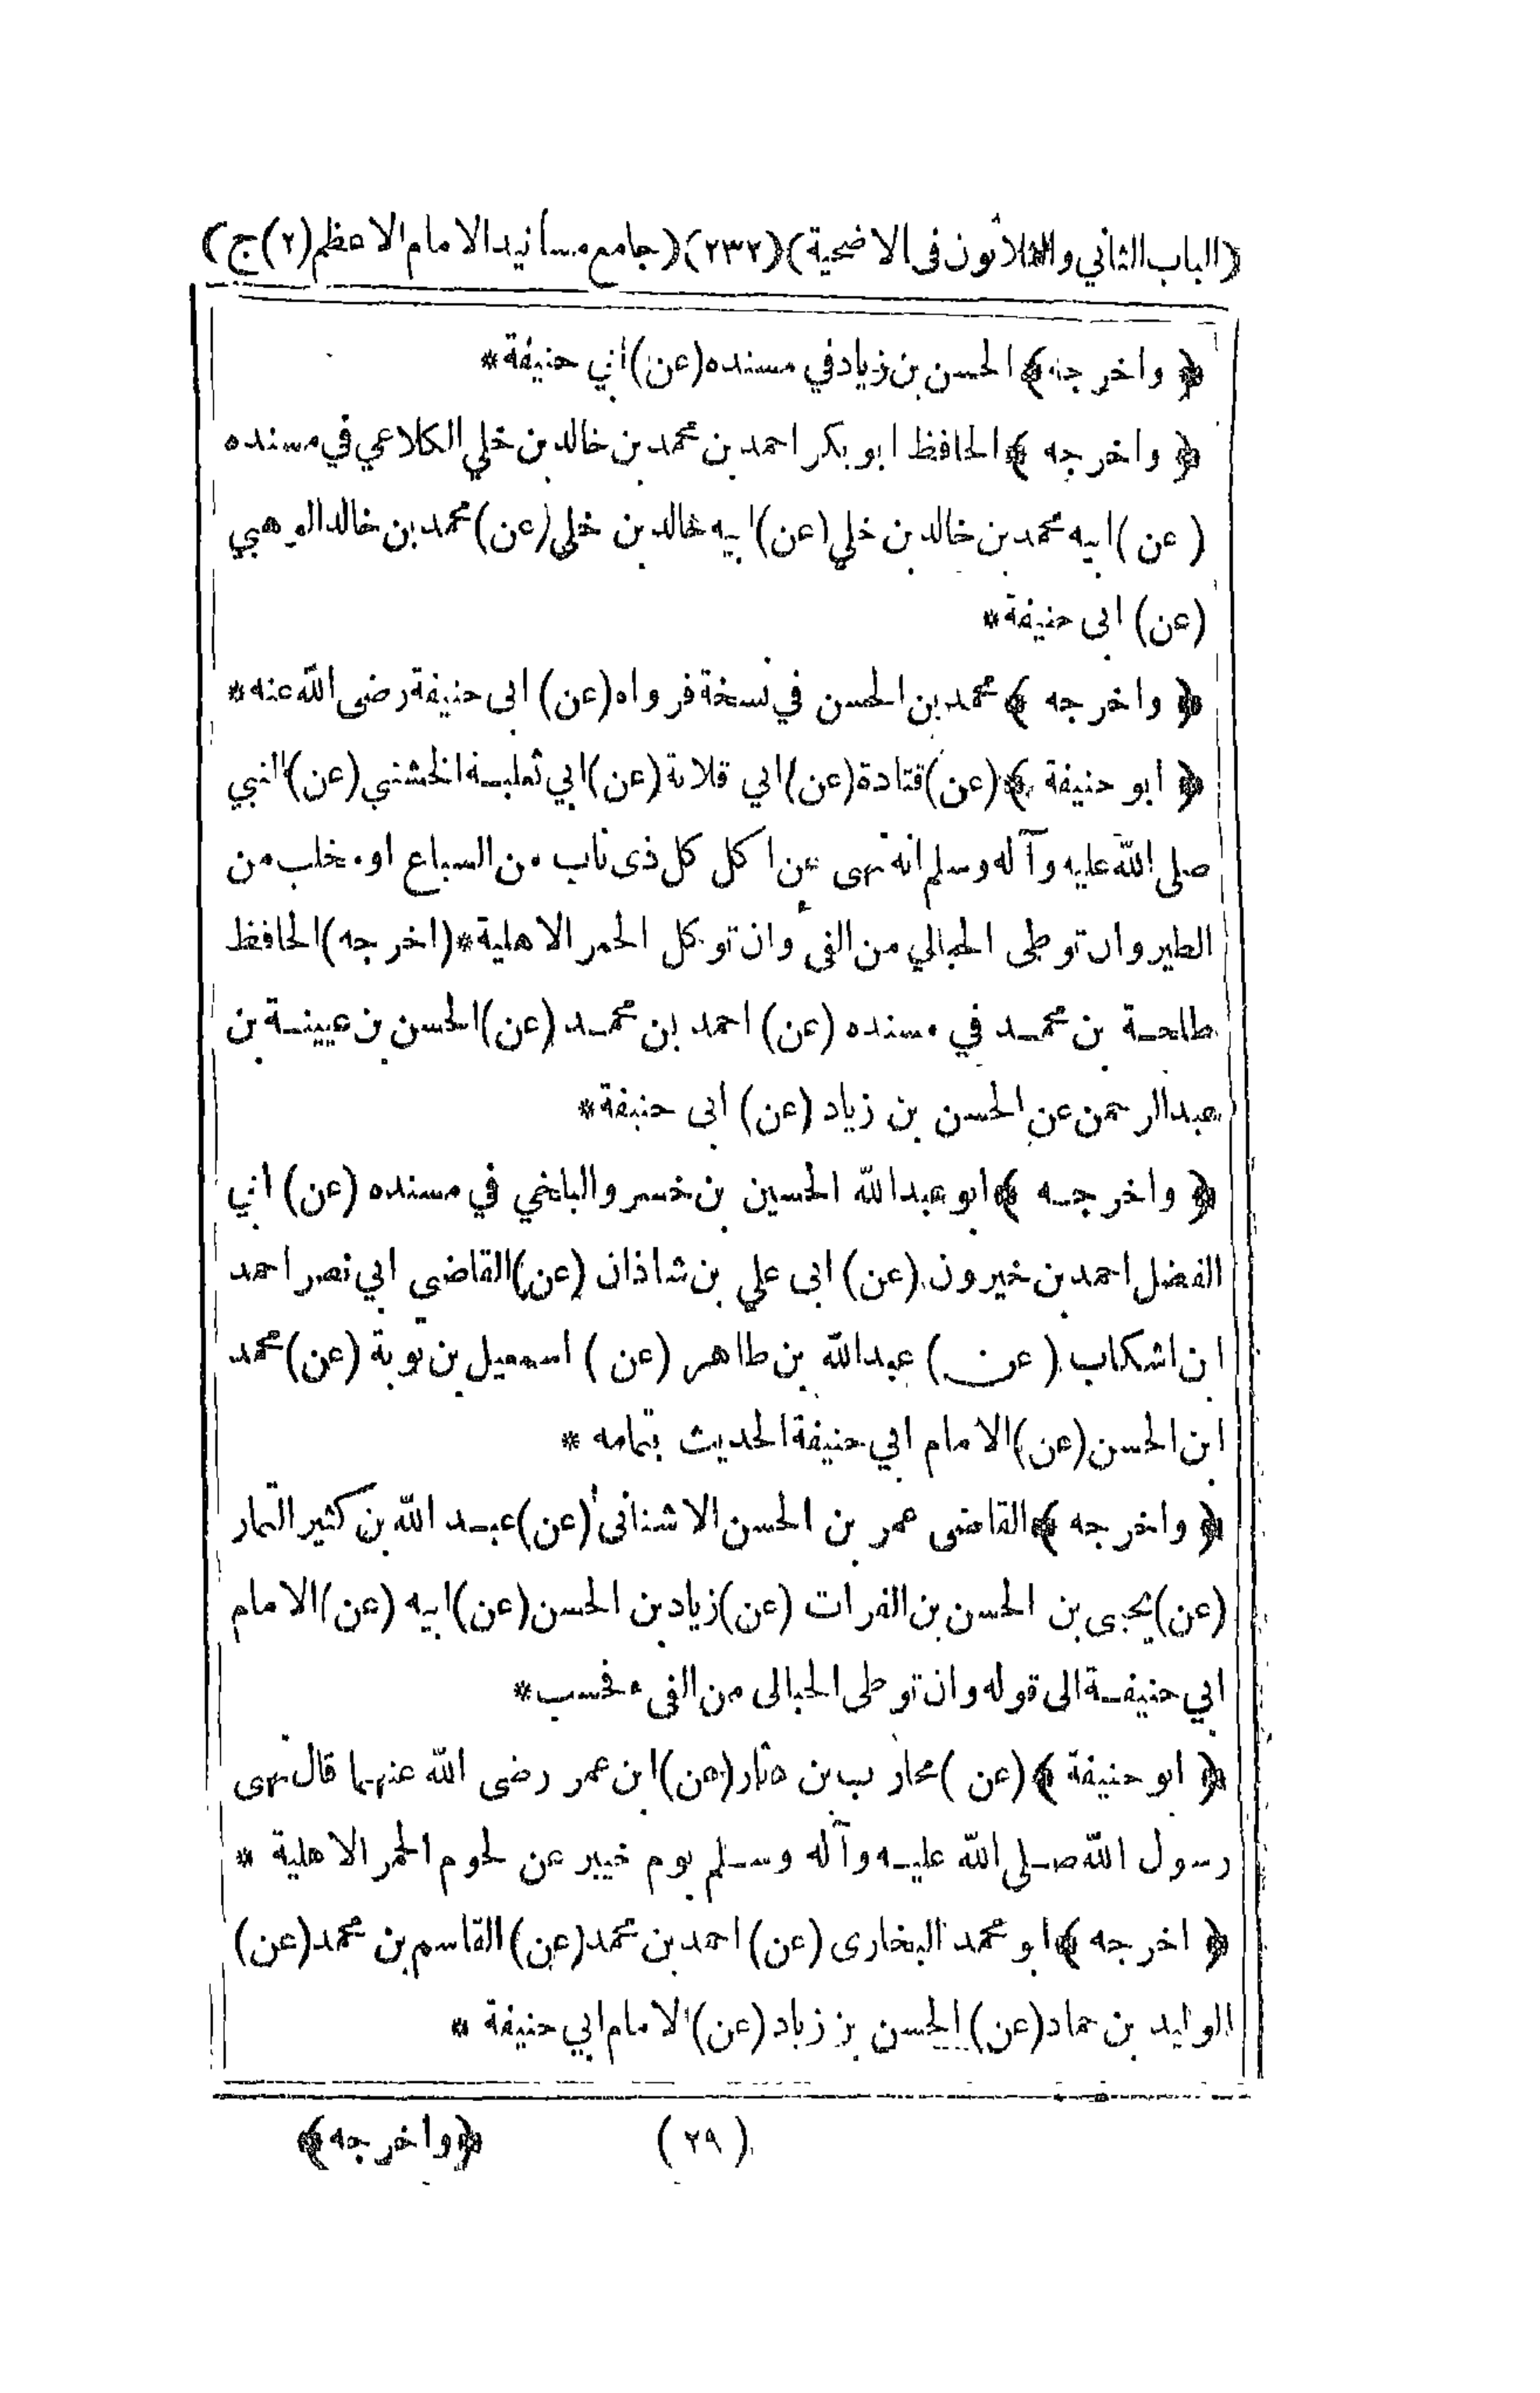 (الباب الثاني والثلاثون فى الاضحية) (٢٣٢) (جامع مسانيد الامام الاعظم (٢) ج)
﴿ واخرجه ﴾ الحسن بن زياد في مسنده (عن) أبي حنيفة *
﴿ واخرجه ﴾ الحافظ ابو بكر احمد بن محمد بن خالد بن خلي الكلاعي في مسنده
(عن) ابيه محمد بن خالد بن خلي (عن) ابيه خالد بن خلي (عن) محمد بن خالد الوهبي
(عن) ابى حنيفة *
﴿ واخرجه ﴾ محمد بن الحسن في نسخة فرواه (عن) ابى حنيفة رضى الله عنه *
﴿ ابو حنيفة ﴾ (عن) قتادة (عن) ابي قلابة (عن) ابي ثعلبة الخشني (عن) النبي
صلى الله عليه وآله وسلم انه نهى عن اكل كل ذى ناب من السباع او مخلب من
الطير وان توطى الحبالي من الفىء وان توكل الحمر الاهلية * (اخرجه) الحافظ
طلحة بن محمد في مسنده (عن) احمد بن محمد (عن) الحسن بن عيينة بن
عبد الرحمن عن الحسن بن زياد (عن) ابى حنيفة *
﴿ واخرجه ﴾ ابو عبد الله الحسين بن خسرو البلخي في مسنده (عن) ابي
الفضل احمد بن خيرون (عن) ابى علي بن شاذان (عن) القاضى ابي نصر احمد
ابن اشكاب (عن) عبد الله بن طاهر (عن) اسمعيل بن توبة (عن) محمد
ابن الحسن (عن) الامام ابي حنيفة الحديث بتمامه *
﴿ واخرجه ﴾ القاضى عمر بن الحسن الاشنانى (عن) عبد الله بن كثير التمار
(عن) يحيى بن الحسن بن الفرات (عن) زياد بن الحسن (عن) ابيه (عن) الامام
ابي حنيفة الى قوله وان توطى الحبالى من الفىء فحسب *
﴿ ابو حنيفة ﴾ (عن) محارب بن دثار (عن) ابن عمر رضى الله عنهما قال نهى
رسول الله صلى الله عليه وآله وسلم يوم خيبر عن لحوم الحمر الاهلية *
﴿ اخرجه ﴾ ابو محمد البخارى (عن) احمد بن محمد (عن) القاسم بن محمد (عن)
الوليد بن حماد (عن) الحسن بن زياد (عن) الامام ابي حنيفة *
(٢٩) ﴿واخرجه﴾